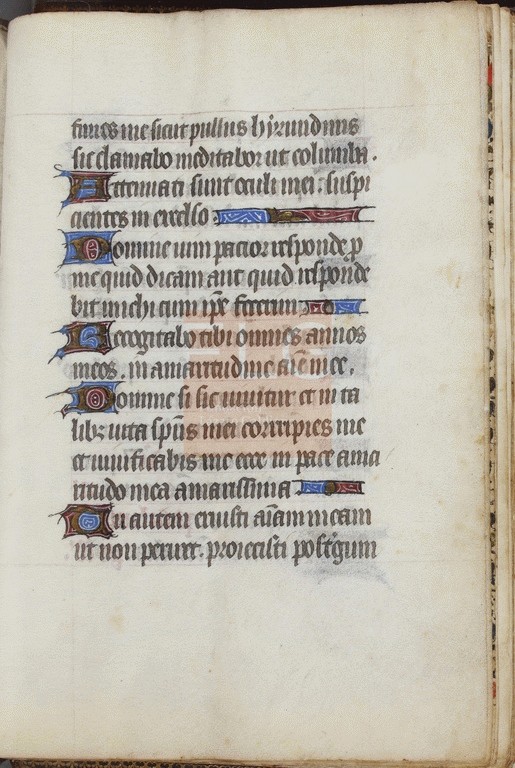 fimes me sicut pullus hÿrundinis
sic clamabo meditabor ut columba.
Attenuati sunt oculi mei: suspi
cientes in excelso.
Domine uim patior responde p̱
me quid dicam aut quid responde
bit michi cum ip̄e fecerim
Recogitabo tibi omnes annos
meos. in amaritudine aīe mee.
Domine si sic uiuitur et in ta
lib; uita sp̄us mei corripies me
et uiuificabis me ecce in pace ama
ritudo mea amarissima
Tu autem eruisti aīam meam
ut non periret. proiecisti post t̾gum